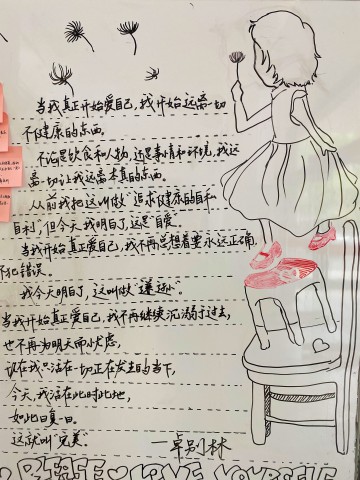 当我真正开始爱自己,我开始远离一切
不健康的东西。
不论是饮食和人物,还是事情和环境,我远
离一切让我远离本真的东西。
从前我把这叫做“追求健康的自私
自利”,但今天我明白了,这是“自爱”。
当我开始真正爱自己,我不再总想着要永远正确,
不犯错误。
我今天明白了,这叫做“谦逊”。
当我开始真正爱自己,我不再继续沉溺于过去,
也不再为明天而忧虑,
现在我只活在一切正在发生的当下,
今天,我活在此时此地,
如此日复一日。
这就叫“完美”。
——卓别林
PLEASE LOVE YOURSELF